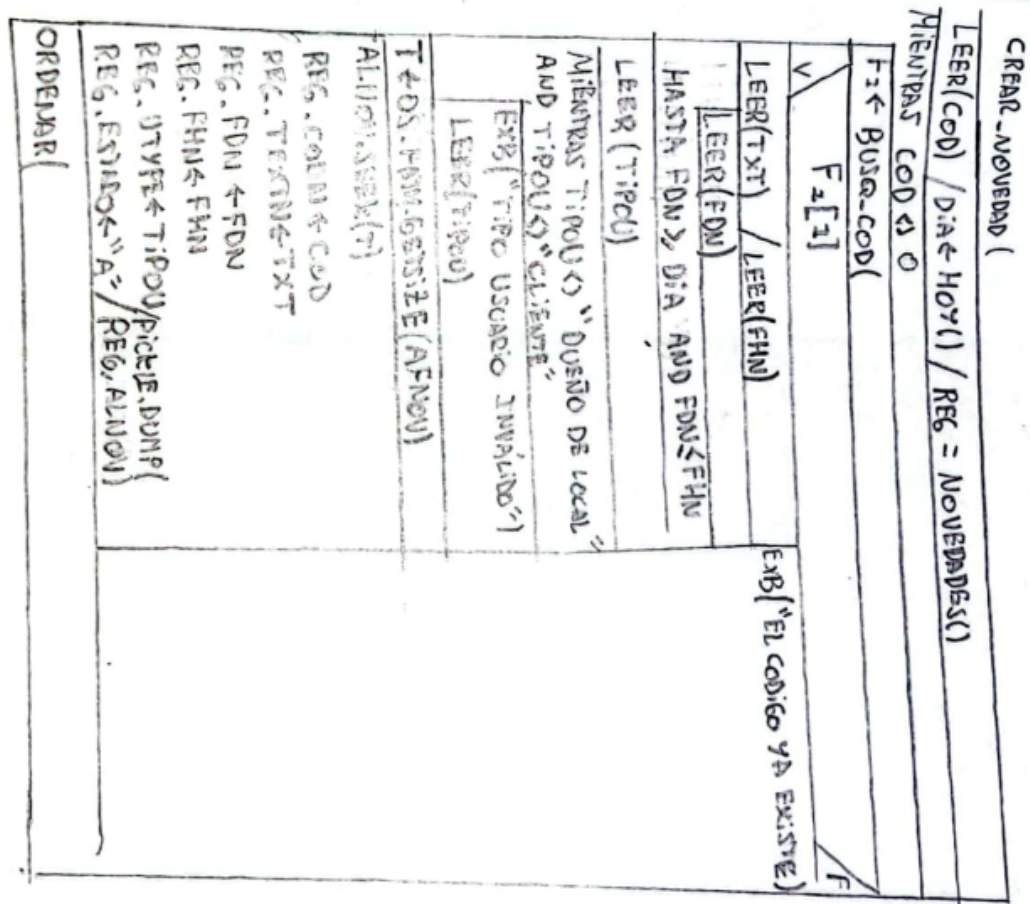 CREAR_NOVEDAD(
LEER(COD) / DiA ← HOY() / REG = NOVEDADES()
MiENTRAS COD <> 0
F2 ← BUSQ_COD(
F2[2]
V
F
LEER(TXT) / LEER(FHN)
LEER(FDN)
HASTA FDN >, DiA AND FDN ≤ FHN
LEER(TiPOU)
MiENTRAS TiPOU <> "DUEÑO DE LOCAL"
AND TiPOU <> "CLiENTE"
EXB("TiPO USUARIO INVÁLIDO")
LEER(TiPOU)
T ← OS.PATH.GETSIZE(AFNOV)
ALNOV.SEEK(T)
REG.CODN ← COD
REG.TEXTN ← TXT
REG.FDN ← FDN
REG.FHN ← FHN
REG.UTYPE ← TiPOU / PiCKLE.DUMP(
REG.ESTADO ← "A" / REG, ALNOV)
EXB("EL CODiGO YA EXiSTE)
ORDENAR(